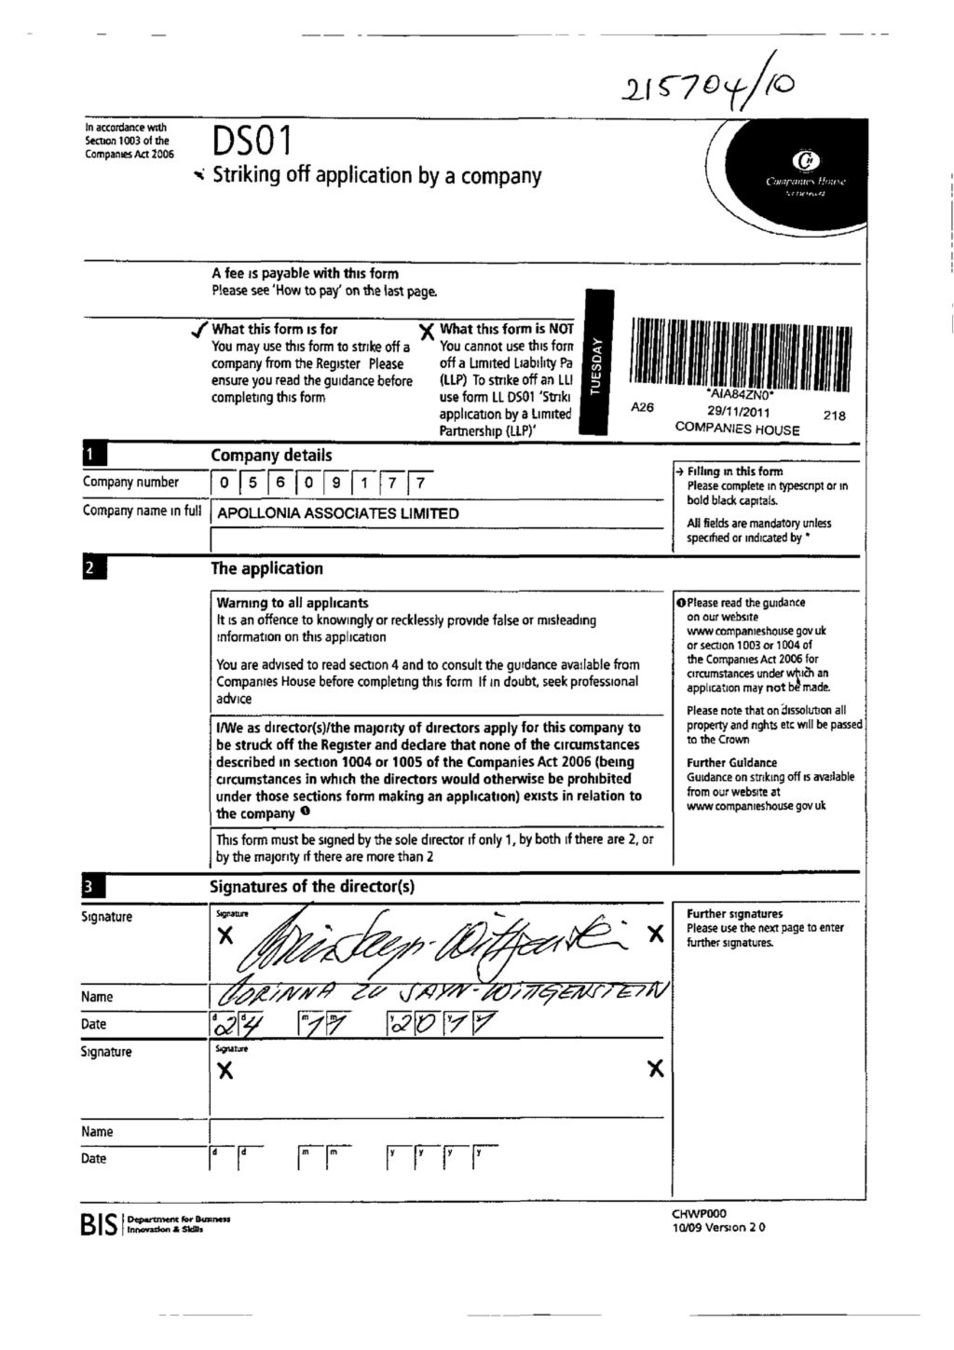 215704/10
In accordance with
Section 1003 of the
Companies Act 2006
DS01
Striking off application by a company
Companies House
A fee is payable with this form
Please see 'How to pay' on the last page.
✓ What this form is for
You may use this form to strike off a
company from the Register Please
ensure you read the guidance before
completing this form
X What this form is NOT
You cannot use this form
off a Limited Liability Pa
(LLP) To strike off an LLI
use form LL DS01 'Striki
application by a Limited
Partnership (LLP)'
TUESDAY
*AIA84ZN0*
A26 29/11/2011 218
COMPANIES HOUSE
1 Company details
Company number 0 5 6 0 9 1 7 7
Company name in full APOLLONIA ASSOCIATES LIMITED
→ Filling in this form
Please complete in typescript or in
bold black capitals.
All fields are mandatory unless
specified or indicated by *
2 The application
Warning to all applicants
It is an offence to knowingly or recklessly provide false or misleading
information on this application
You are advised to read section 4 and to consult the guidance available from
Companies House before completing this form If in doubt, seek professional
advice
I/We as director(s)/the majority of directors apply for this company to
be struck off the Register and declare that none of the circumstances
described in section 1004 or 1005 of the Companies Act 2006 (being
circumstances in which the directors would otherwise be prohibited
under those sections form making an application) exists in relation to
the company ❶
This form must be signed by the sole director if only 1, by both if there are 2, or
by the majority if there are more than 2
❶ Please read the guidance
on our website
www companieshouse gov uk
or section 1003 or 1004 of
the Companies Act 2006 for
circumstances under which an
application may not be made.
Please note that on dissolution all
property and rights etc will be passed
to the Crown
Further Guidance
Guidance on striking off is available
from our website at
www companieshouse gov uk
3 Signatures of the director(s)
Signature
Signature
X X
Name CORINNA ZU SAYN-WITTGENSTEIN
Date d d m m y y y y
24 11 2011
Further signatures
Please use the next page to enter
further signatures.
Signature
Signature
X X
Name
Date d d m m y y y y
BIS Department for Business
Innovation & Skills
CHWP000
10/09 Version 2 0